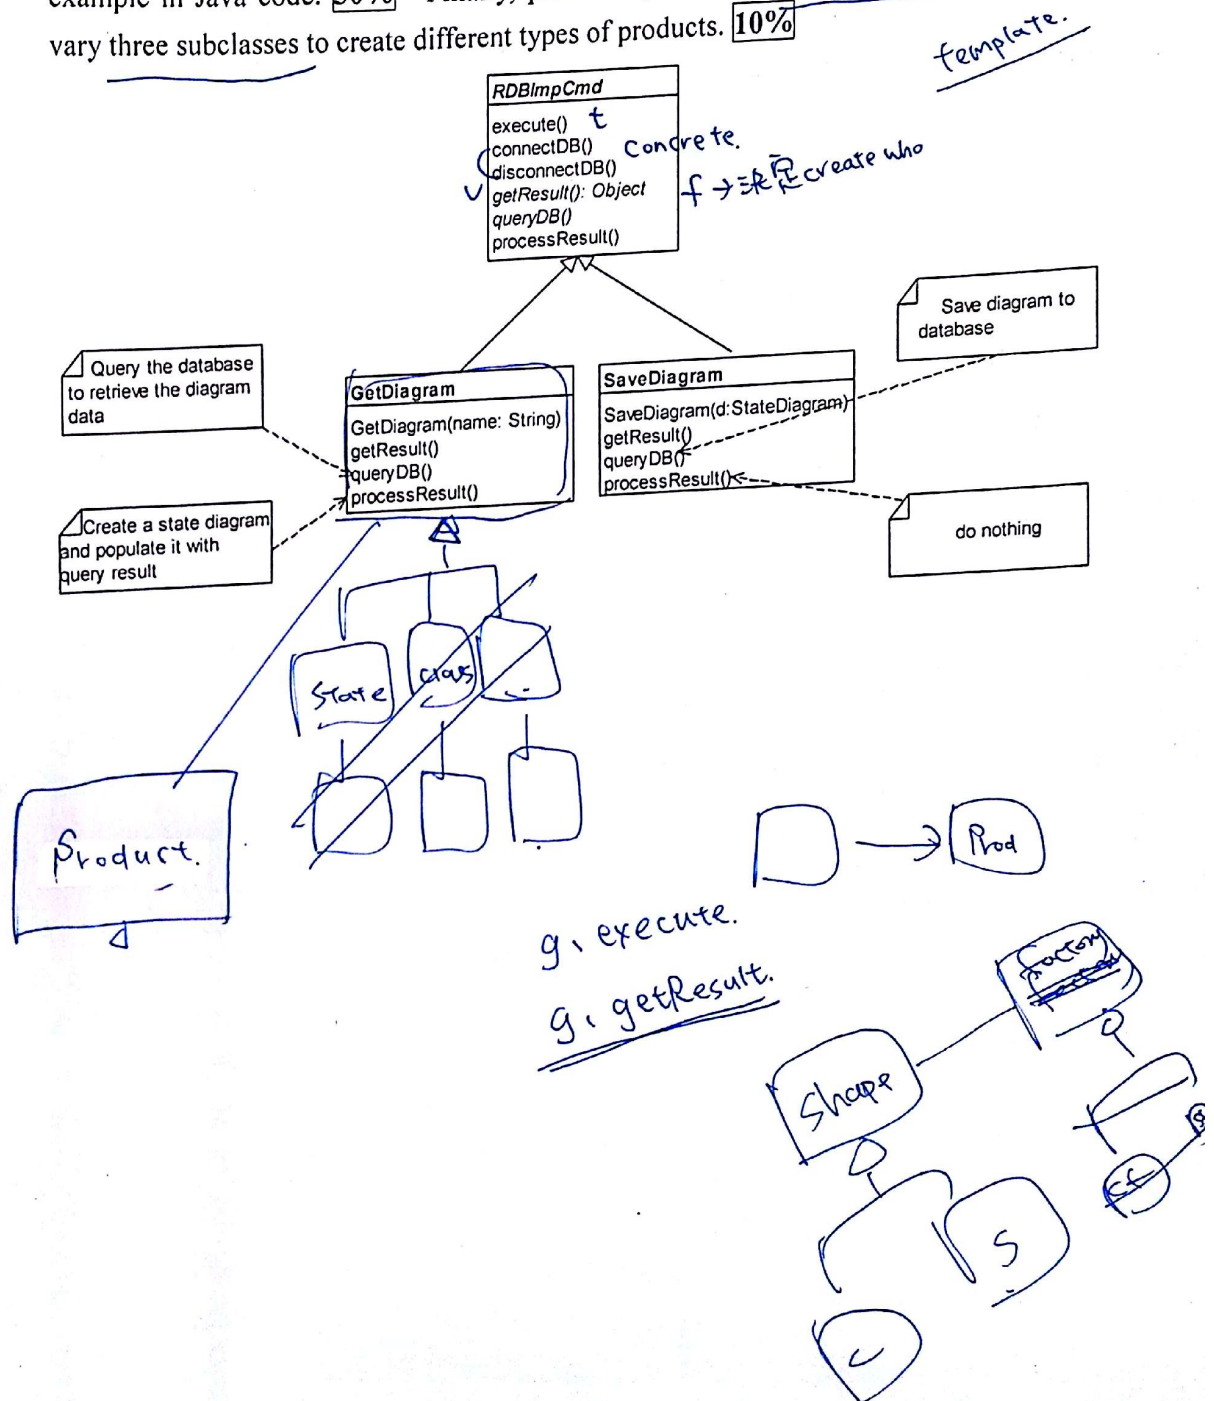 example in Java code. 30%
vary three subclasses to create different types of products. 10%
template.
RDBImpCmd
execute() t
connectDB()
disconnectDB()
concrete.
v getResult(): Object
f → 決定create who
queryDB()
processResult()
Save diagram to
database
Query the database
to retrieve the diagram
data
GetDiagram
GetDiagram(name: String)
getResult()
queryDB()
processResult()
SaveDiagram
SaveDiagram(d:StateDiagram)
getResult()
queryDB()
processResult()
Create a state diagram
and populate it with
query result
do nothing
State
class
Product.
Prod
g. execute.
g. getResult.
factory
Shape
cf
S
C